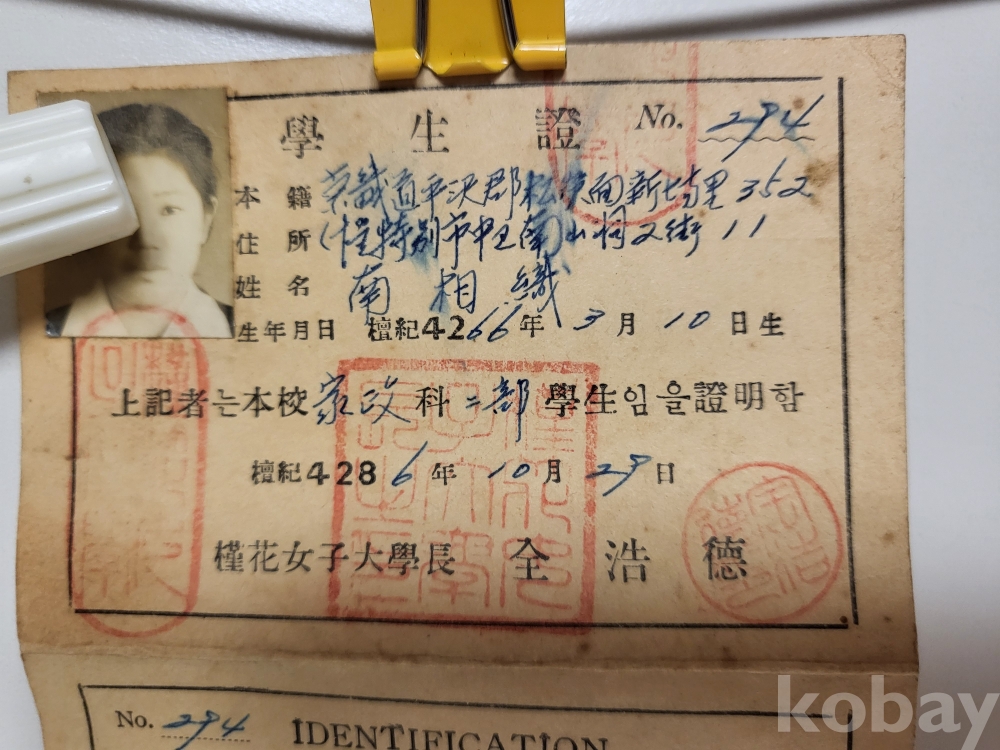 學生證 No. 294
本籍 京畿道平沢郡松炭面新垈里 352
住所 特別市中区南山洞 2街 11
姓名 南相織
生年月日 檀紀4266年 3月 10日生
上記者는本校家政科二部學生임을證明함
檀紀4286年 10月 29日
槿花女子大學長 全浩德
No. 294 IDENTIFICATION
kobay